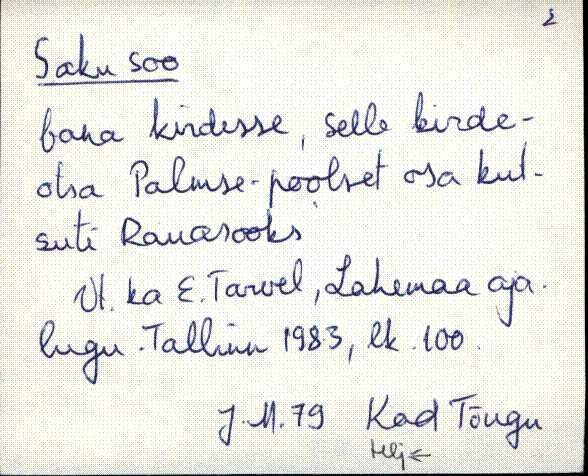 2
Saku soo
kirdesse, selle kirde-
otsa Palmse-poolset osa kut-
suti Rauasooks
Vt. ka E. Tarvel, Lahemaa aja-
lugu. Tallinn 1983, lk. 100.
J.M. 79 Kad Tõugu
Hlj ←